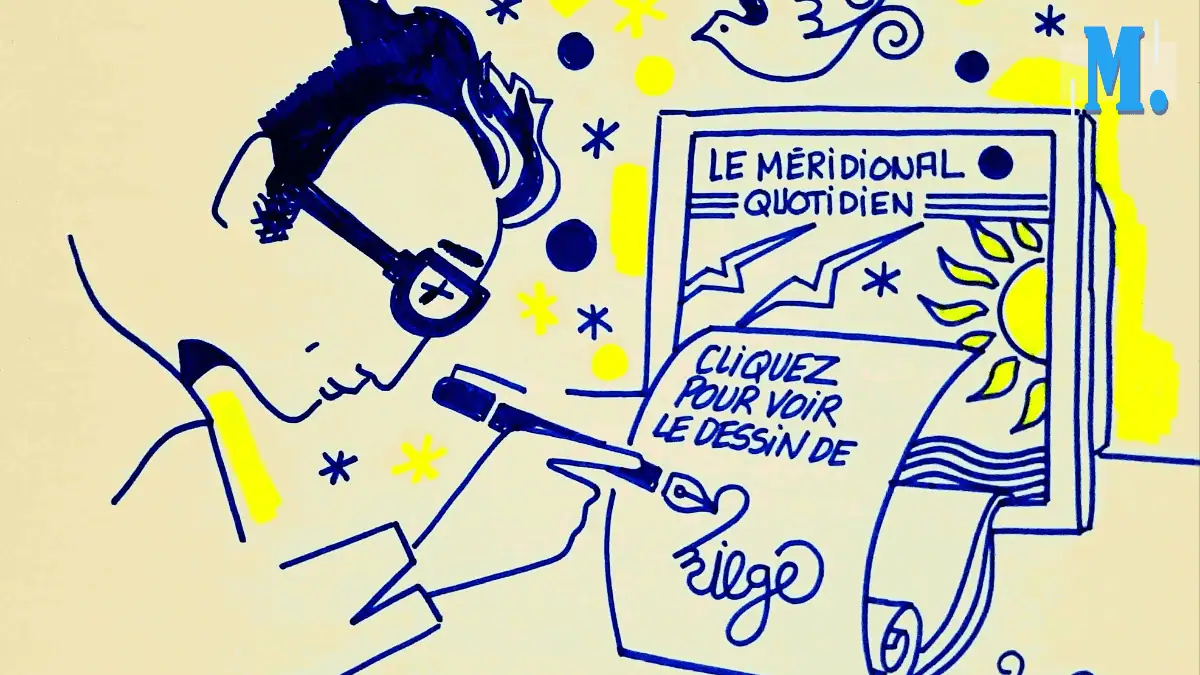 M.
LE MÉRIDIONAL
QUOTIDIEN
CLIQUEZ
POUR VOIR
LE DESSIN DE